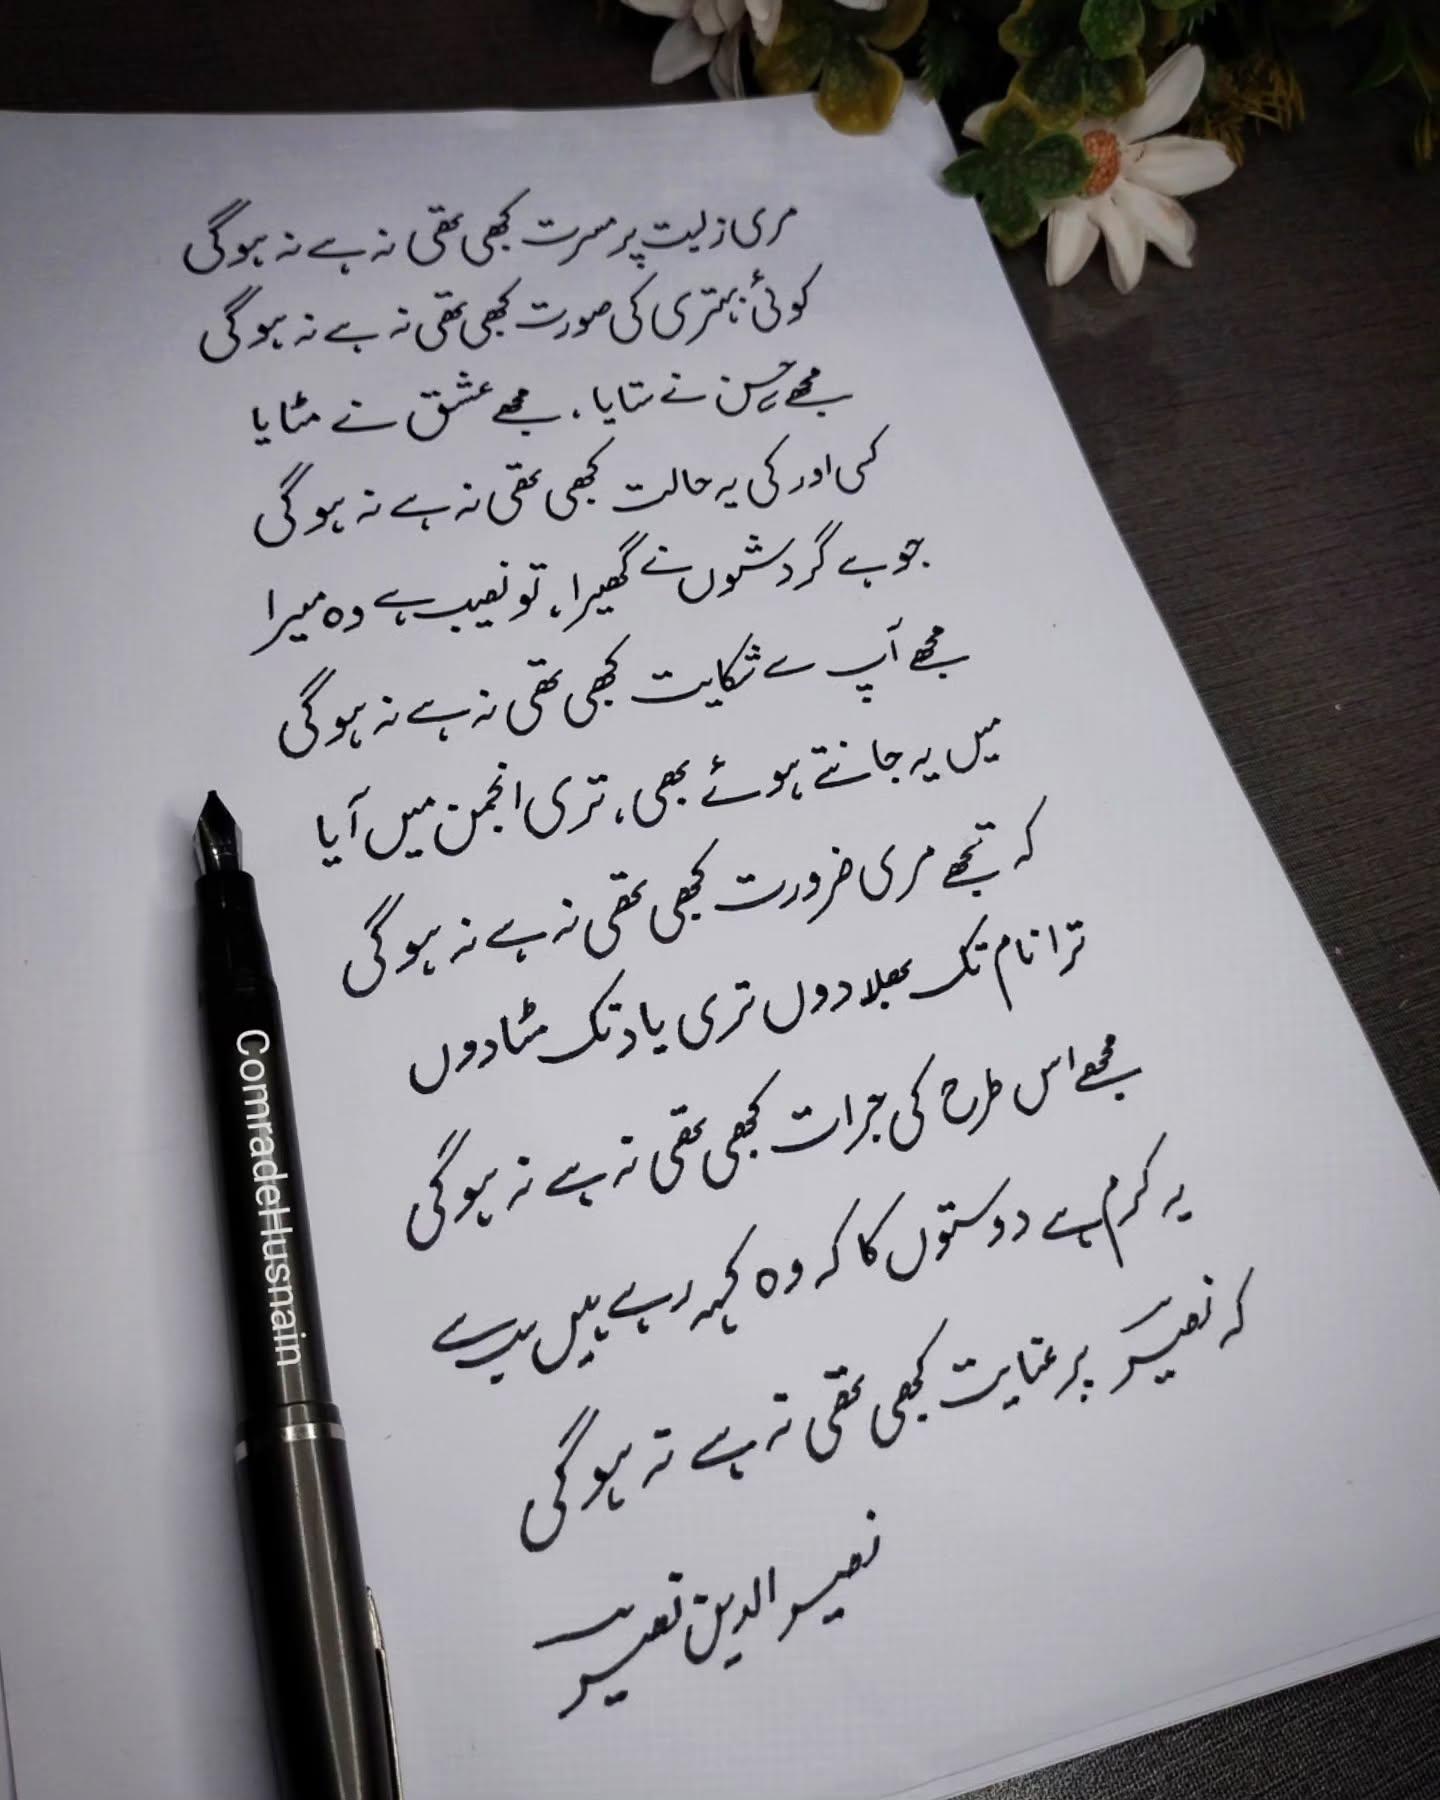 مری زیست پر مسرت کبھی تھی نہ ہے نہ ہوگی
کوئی بہتری کی صورت کبھی تھی نہ ہے نہ ہوگی
مجھے حسن نے ستایا ، مجھے عشق نے مٹایا
کسی اور کی یہ حالت کبھی تھی نہ ہے نہ ہوگی
جو ہے گردشوں نے گھیرا ، تو نصیب ہے وہ میرا
مجھے آپ سے شکایت کبھی تھی نہ ہے نہ ہوگی
میں یہ جانتے ہوئے بھی ، تری انجمن میں آیا
کہ تجھے مری ضرورت کبھی تھی نہ ہے نہ ہوگی
ترا نام تک بھلا دوں تری یاد تک مٹا دوں
مجھے اس طرح کی جرات کبھی تھی نہ ہے نہ ہوگی
یہ کرم ہے دوستوں کا کہ وہ کہہ رہے ہیں سب سے
کہ نصیر پر عنایت کبھی تھی نہ ہے نہ ہوگی
نصیر الدین نصیر
ComradeHusnain